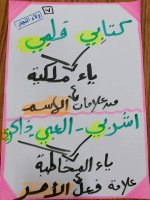 ٧
كتابي قلمي
ياء ملكية
من علامات الاسم
اشربي - العبي ذاكري
ياء المخاطبة
علامة فعل الأمر